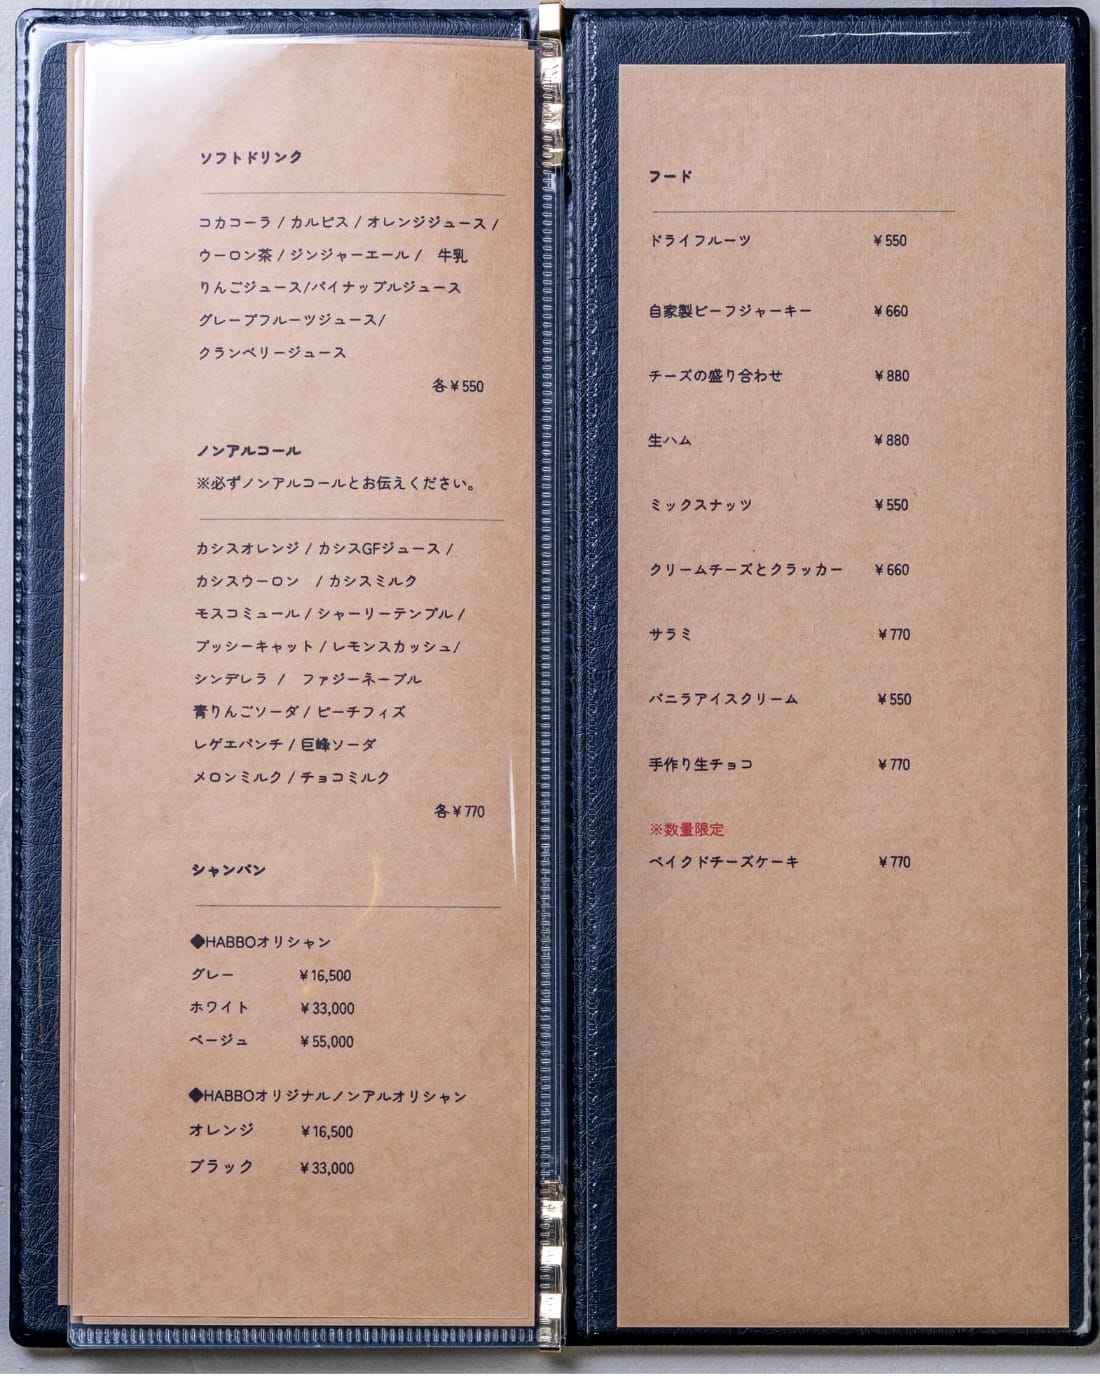 ソフトドリンク
コカコーラ / カルピス / オレンジジュース /
ウーロン茶 / ジンジャーエール /　牛乳
りんごジュース/パイナップルジュース
グレープフルーツジュース/
クランベリージュース
各￥550
ノンアルコール
※必ずノンアルコールとお伝えください。
カシスオレンジ / カシスGFジュース /
カシスウーロン　/ カシスミルク
モスコミュール / シャーリーテンプル /
プッシーキャット / レモンスカッシュ/
シンデレラ /　ファジーネーブル
青りんごソーダ / ピーチフィズ
レゲエパンチ / 巨峰ソーダ
メロンミルク / チョコミルク
各￥770
シャンパン
◆HABBOオリシャン
グレー ￥16,500
ホワイト ￥33,000
ベージュ ￥55,000
◆HABBOオリジナルノンアルオリシャン
オレンジ ￥16,500
ブラック ￥33,000
フード
ドライフルーツ ￥550
自家製ビーフジャーキー ￥660
チーズの盛り合わせ ￥880
生ハム ￥880
ミックスナッツ ￥550
クリームチーズとクラッカー ￥660
サラミ ￥770
バニラアイスクリーム ￥550
手作り生チョコ ￥770
※数量限定
ベイクドチーズケーキ ￥770